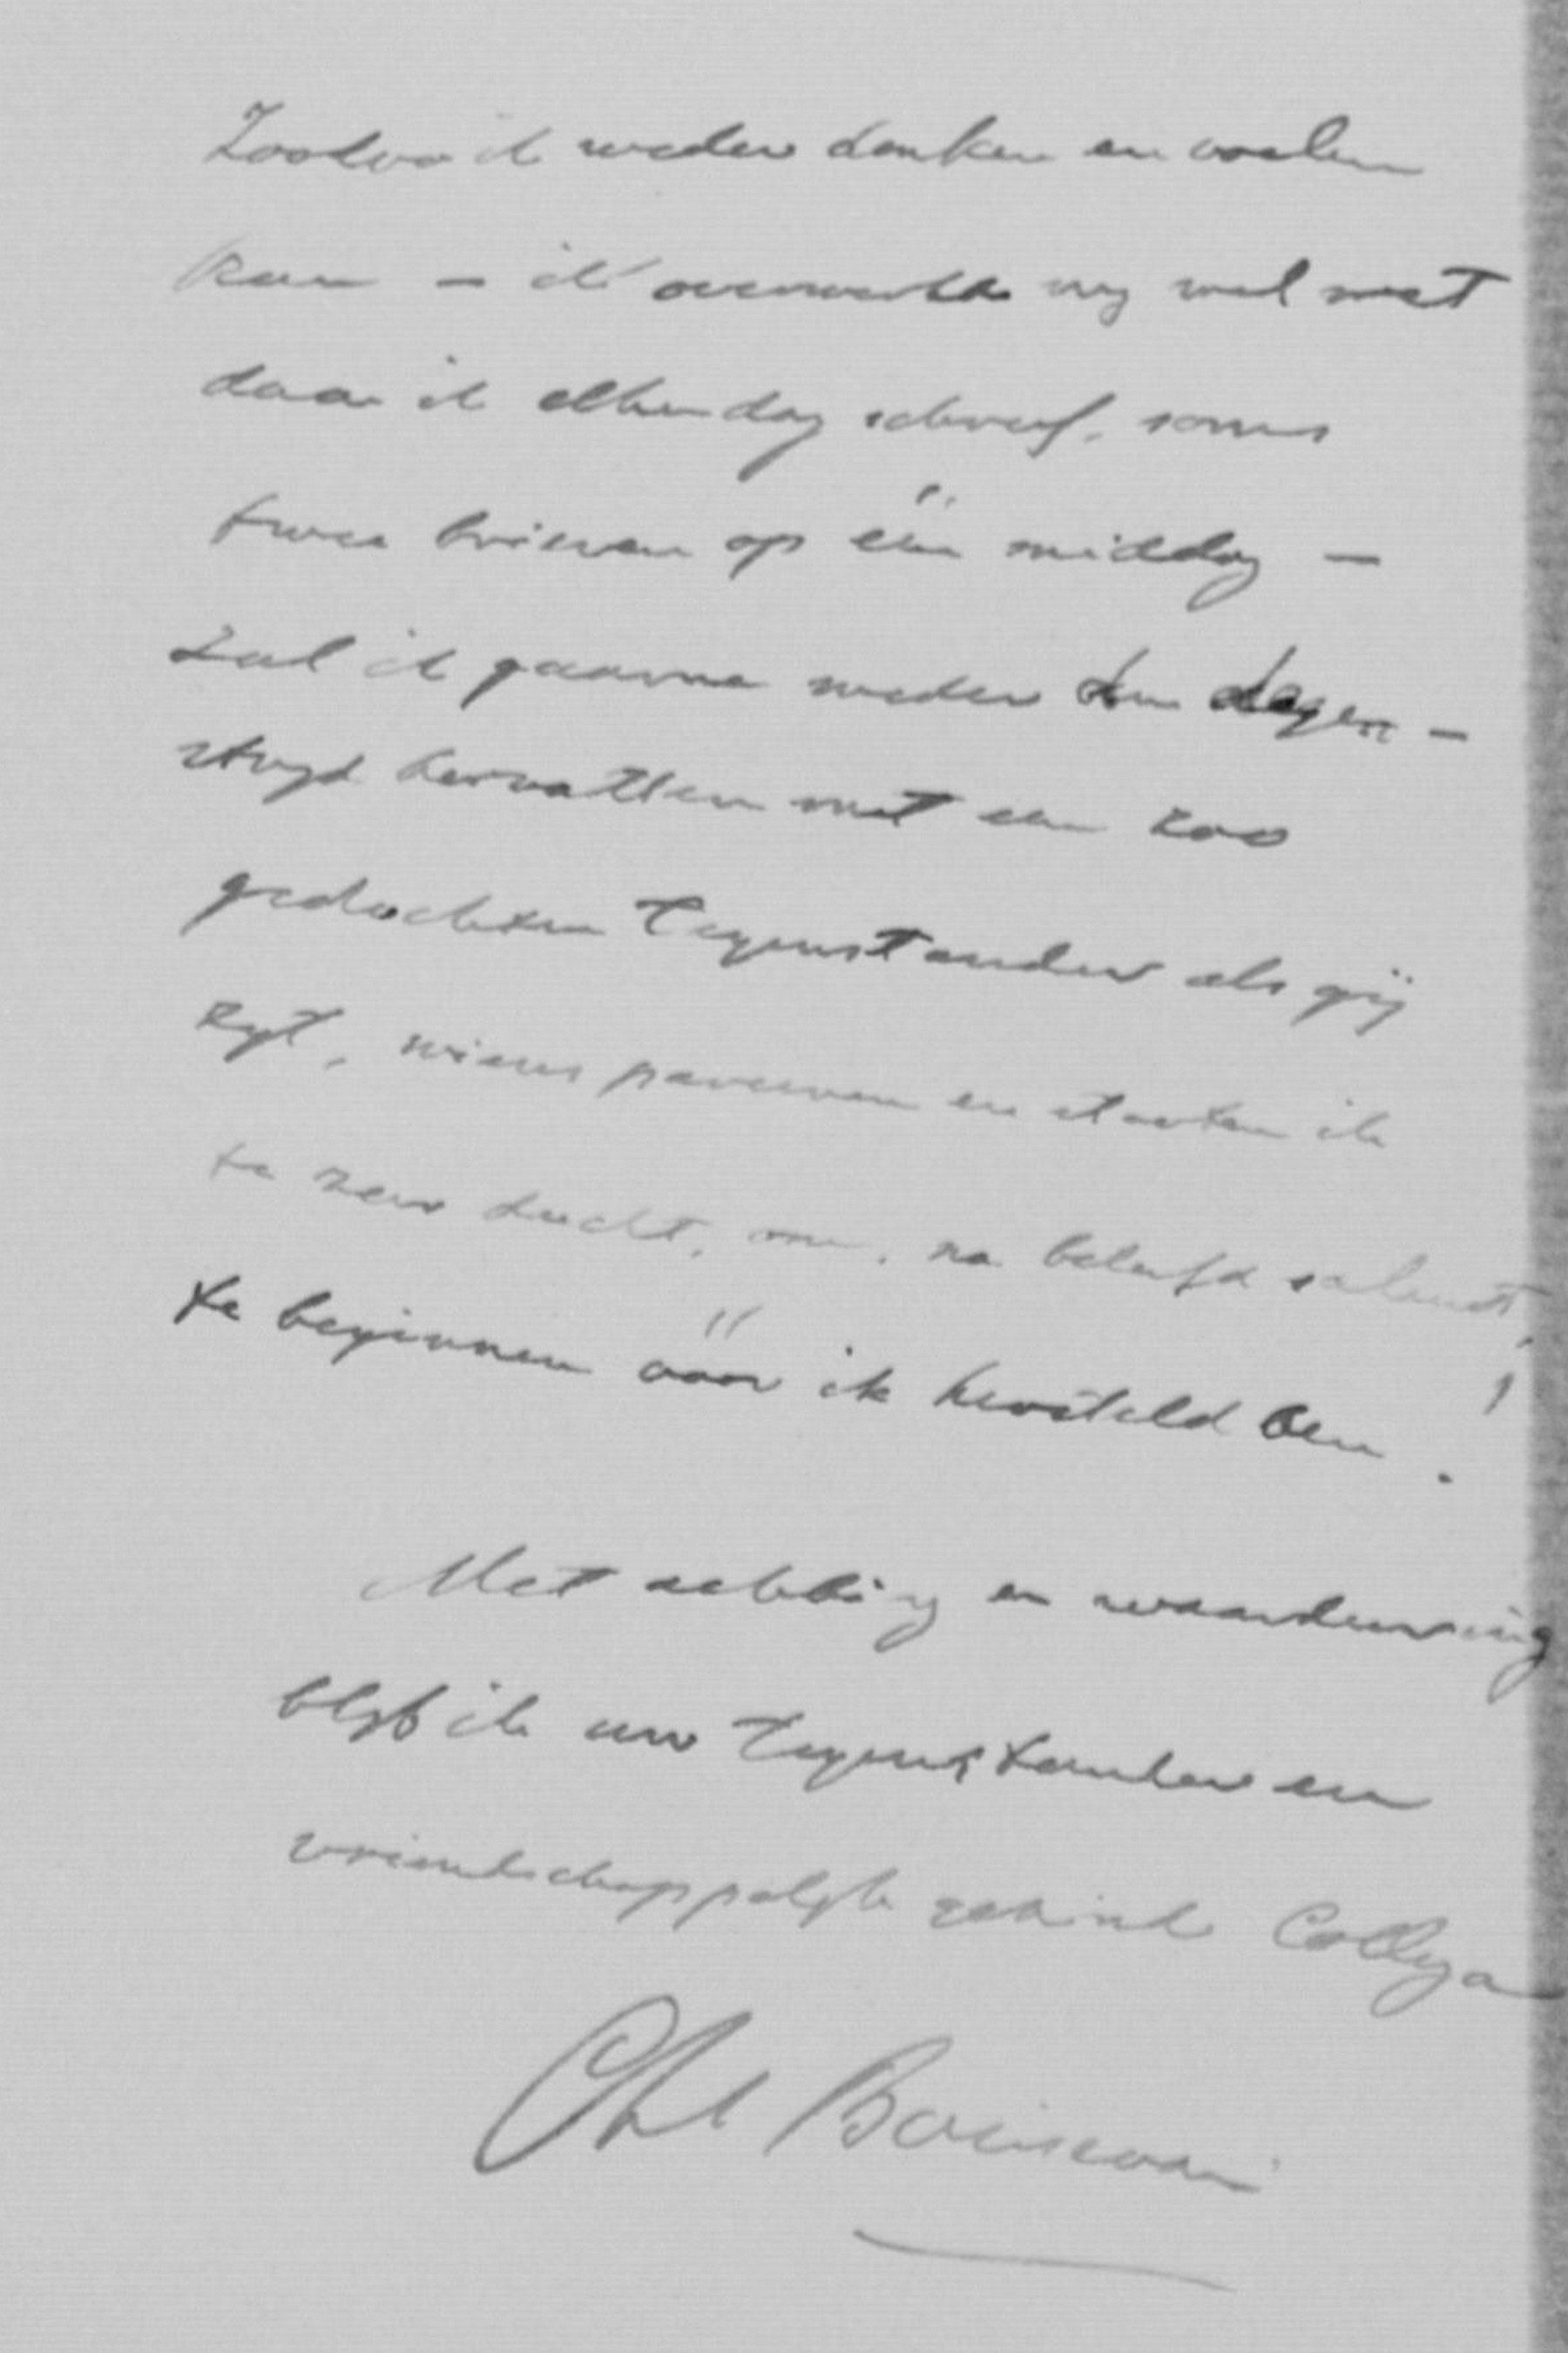 Zoodra ik weder denken en voelen
kan – ik overwerkte mij wel wat
daar ik elken dag schreef, soms
twee brieven op één middag –
zal ik gaarne weder den degen-
strijd hervatten met een zoo
geduchten tegenstander als gij
zijt, wiens pareeren en stooten ik
te zeer ducht, om, na beleefd saluut,
te beginnen vóór ik hersteld ben!
Met achting en waardeering
blijf ik uw tegenstander en
vriendschappelijk gezinde Collega
Chs Boissevain